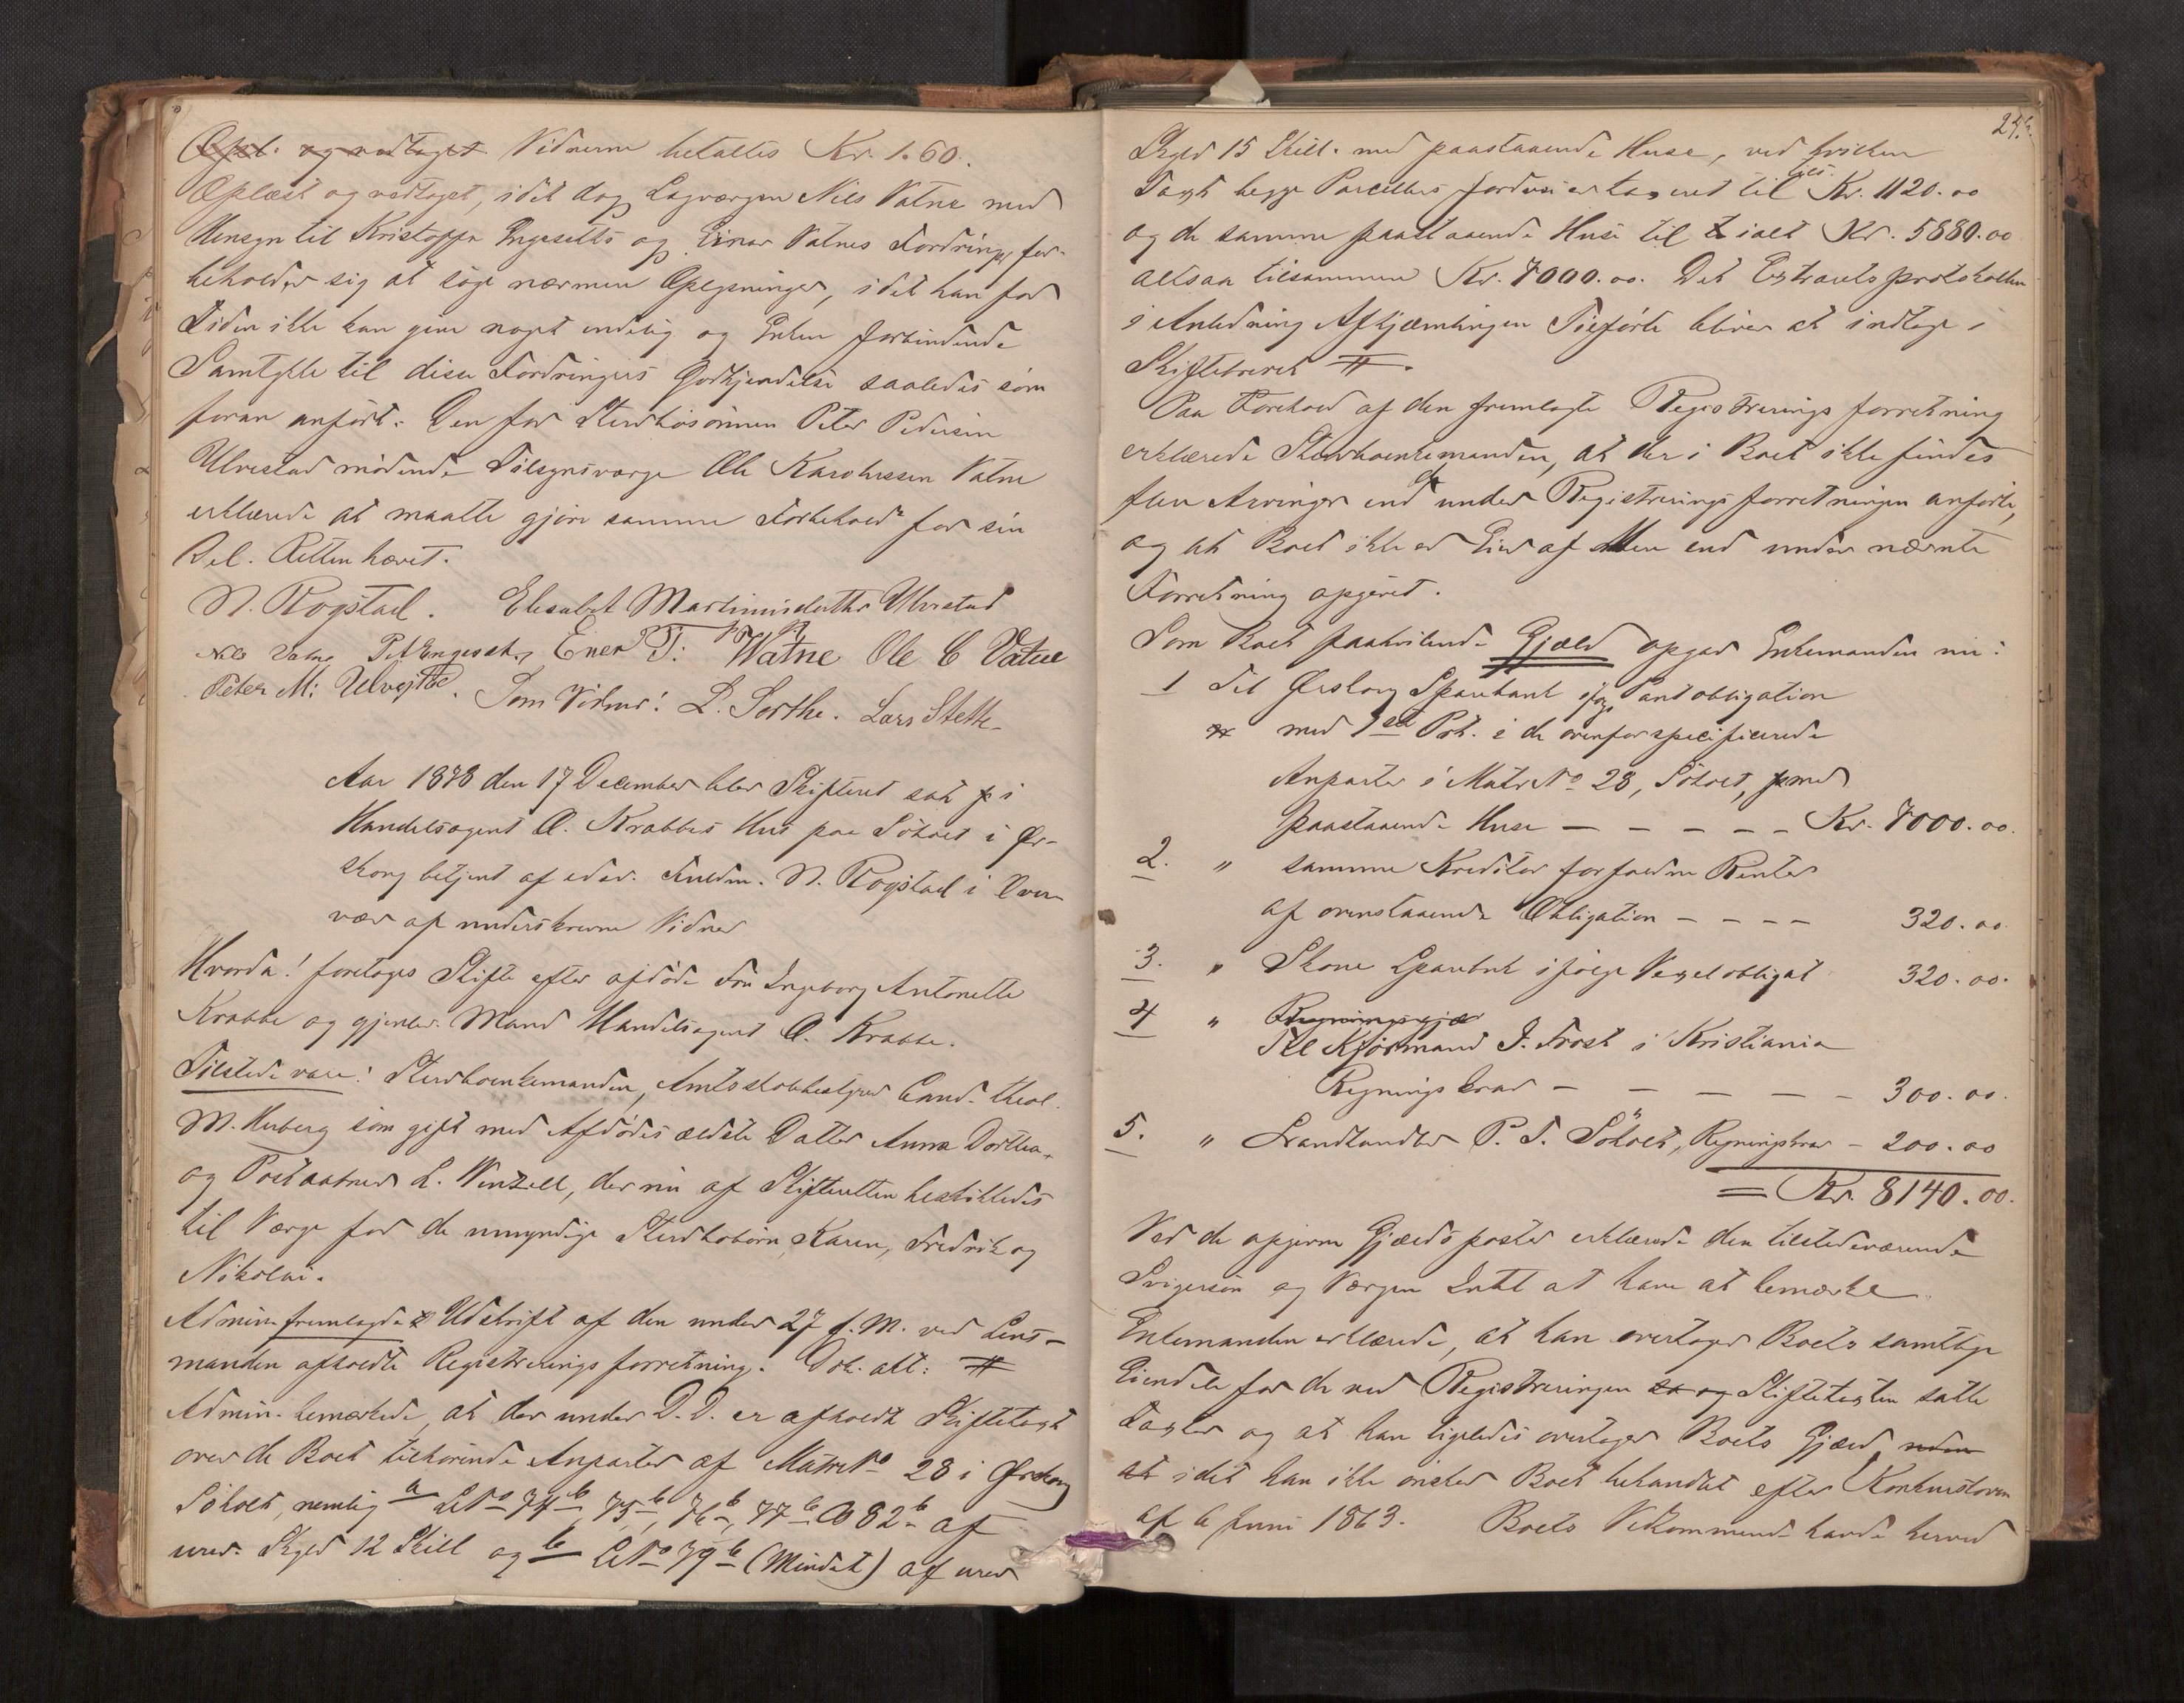 Opl. og vedtaget. Vidnerne betaltes Kr. 1.60.
Oplæst og vedtaget, idet dog Lagværgen Nils Vatne med
Hensyn til Kristoffer Engesetts og Einar Vatnes Fordringer for-
beholder sig at søge nærmere Oplysninger, idet han for
Tiden ikke kan give noget endelig og Enken forbindende
Samtykke til disse Fordringers Godkjendelse saaledes som
foran anført. Den for Sterbosønnen Peter Pedersen
Ulvestad mødende Tilsynsværge Ole Vatne
erklærede at maatte gjøre samme Forbehold for sin
Del. Retten hævet.
N. Rogstad. Elisabet Martinusdatter Ulvestad
Nils Vatne P. Engeset, Ener T: Watne Ole C Vatne
Peter M: Ulvestad. Som Vidner: L. Sorthe. Lars Stette
Aar 1878 den 17 December blev Skifteret sat p i
Handelsagent O. Krabbes Hus paa Søholt i Ør-
skog betjent af edsv. Fuldm. N. Rogstad i Over-
vær af underskrevne Vidner
Hvorda! foretoges Skifte efter afdøde Fru Ingeborg Antonette
Krabbe og gjenlev. Mand Handelsagent O. Krabbe.
Tilstede vare: Sterboenkemanden, Amtsskolebestyrer Cand. theol.
M. Huberg som gift med Afdødes ældste Datter Anna Dorthea
og Postaabner L. Wentzell, der nu af Skifteretten beskikkedes
til Værge for de umyndige Sterbobørn Karen, Fredrik og
Nikolai.
Admin. fremlagde Udskrift af den under 27 f. M. ved Lens-
manden afholdte Registreringsforretning. Dok. alt: #
Admin. bemærkede, at der under D. D. er afholdt Skiftetaxt
over de Boet tilhørende Anparter af Matr No 28 i Ørskog
Søholt, nemlig a LNo 74b, 75b, 76b, 77b & 82b af
urev. Skyld 12 Skill og b LNo 79b (Mindet) af urev
Skyld 15 Skill. med paastaaende Huse, ved hvilken
Taxt begge Parcellers Jordvei er taxeret til Kr. 1120.00
og de samme paastaaende Huse til t ialt Kr. 5880.00
altsaa tilsammen Kr. 7000.00. Det Extraretsprotokollen
i Anledning Afhjemlingen Tilførte bliver at indtage i
Skiftebrevet #.
Paa Forehold af den fremlagte Registreringsforretning
erklærede Sterboenkemanden, at der i Boet ikke findes
flere Arvinger end under Registreringsforretningen anførte,
og at Boet ikke er Eier af Mere end under nævnte
Forretning opgivet.
Som Boet paahvilende Gjæld opgav Enkemanden nu:
1 Til Ørskog Sparebank ifølge Pantobligation
med 1ste Prt. i de ovenfor specificerede
Anparter i Matr No 28, Søholt, p med
paastaaende Huse — — — — — Kr. 7000.00.
2. " samme Kreditor forfaldne Renter
af ovenstaaende Obligation — — — — 320.00.
3. " Skone Sparebnk ifølge Vexelobligat 320.00.
4 " Regningsgjæ
Til Kjøbmand J. Frost i Kristiania
Regningskrav — — — — — 300.00.
5. " Landhandler P. T. Søholt, Regningskrav — 200.00
= Kr. 8140.00.
Ved de opgivne Gjældsposter erklærede den tilstedeværende
Svigersøn og Værgen Intet at have at bemærke
Enkemanden erklærede, at han overtager Boets samtlige
Eiendele for de ved Registreringen og Skiftetaxten satte
Taxter og at han ligeledes overtager Boets Gjæld, uden
at idet han ikke ønsker Boet behandlet efter Konkursloven
af 6 Juni 1863. Boets Vedkommende havde herved